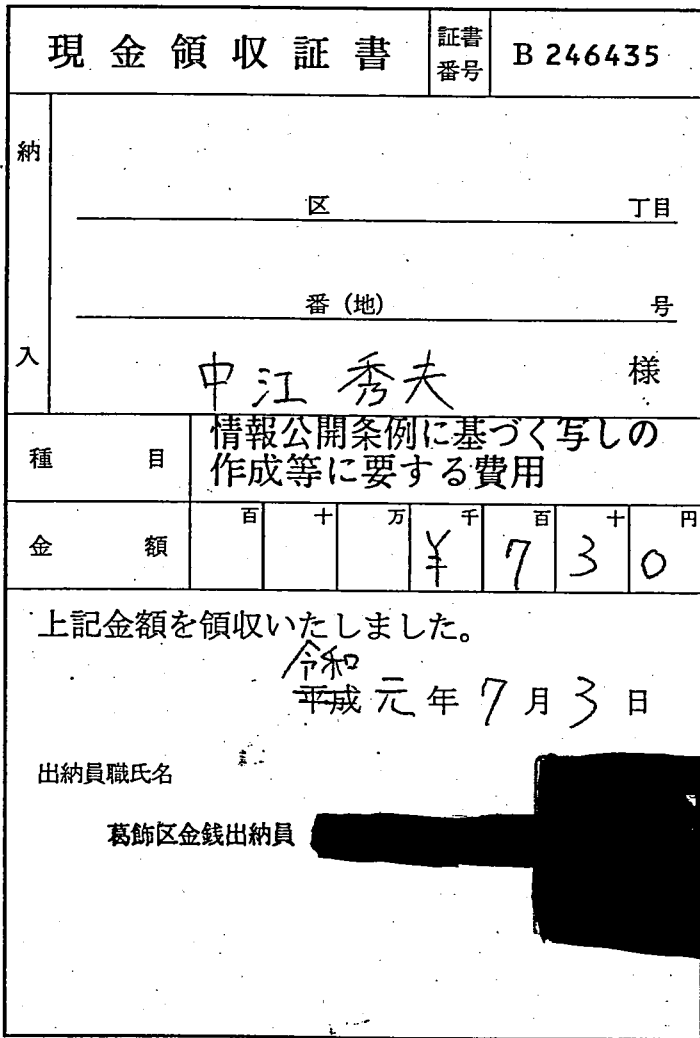 現金領収証書
証書番号
B 246435
納入
区 丁目
番(地) 号
中江 秀夫 様
種目
情報公開条例に基づく写しの
作成等に要する費用
金額
百 十 万 千 百 十 円
¥ 7 3 0
上記金額を領収いたしました。
令和
平成 元 年 7 月 3 日
出納員職氏名
葛飾区金銭出納員